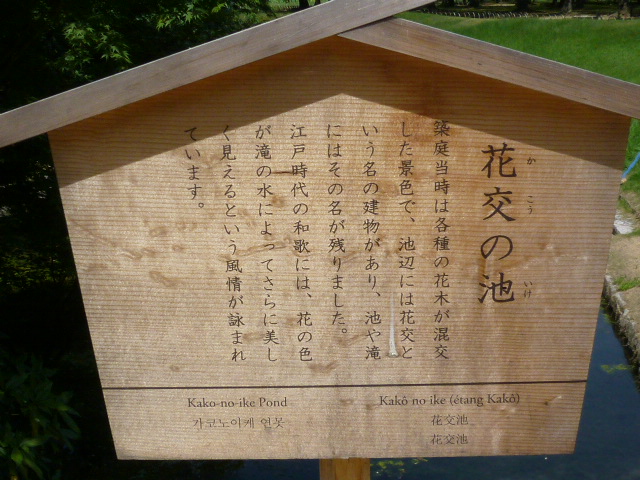 花交の池
かこう いけ
築庭当時は各種の花木が混交
した景色で、池辺には花交と
いう名の建物があり、池や滝
にはその名が残りました。
江戸時代の和歌には、花の色
が滝の水によってさらに美し
く見えるという風情が詠まれ
ています。
Kako-no-ike Pond
가코노이케 연못
Kakô no ike (étang Kakô)
花交池
花交池